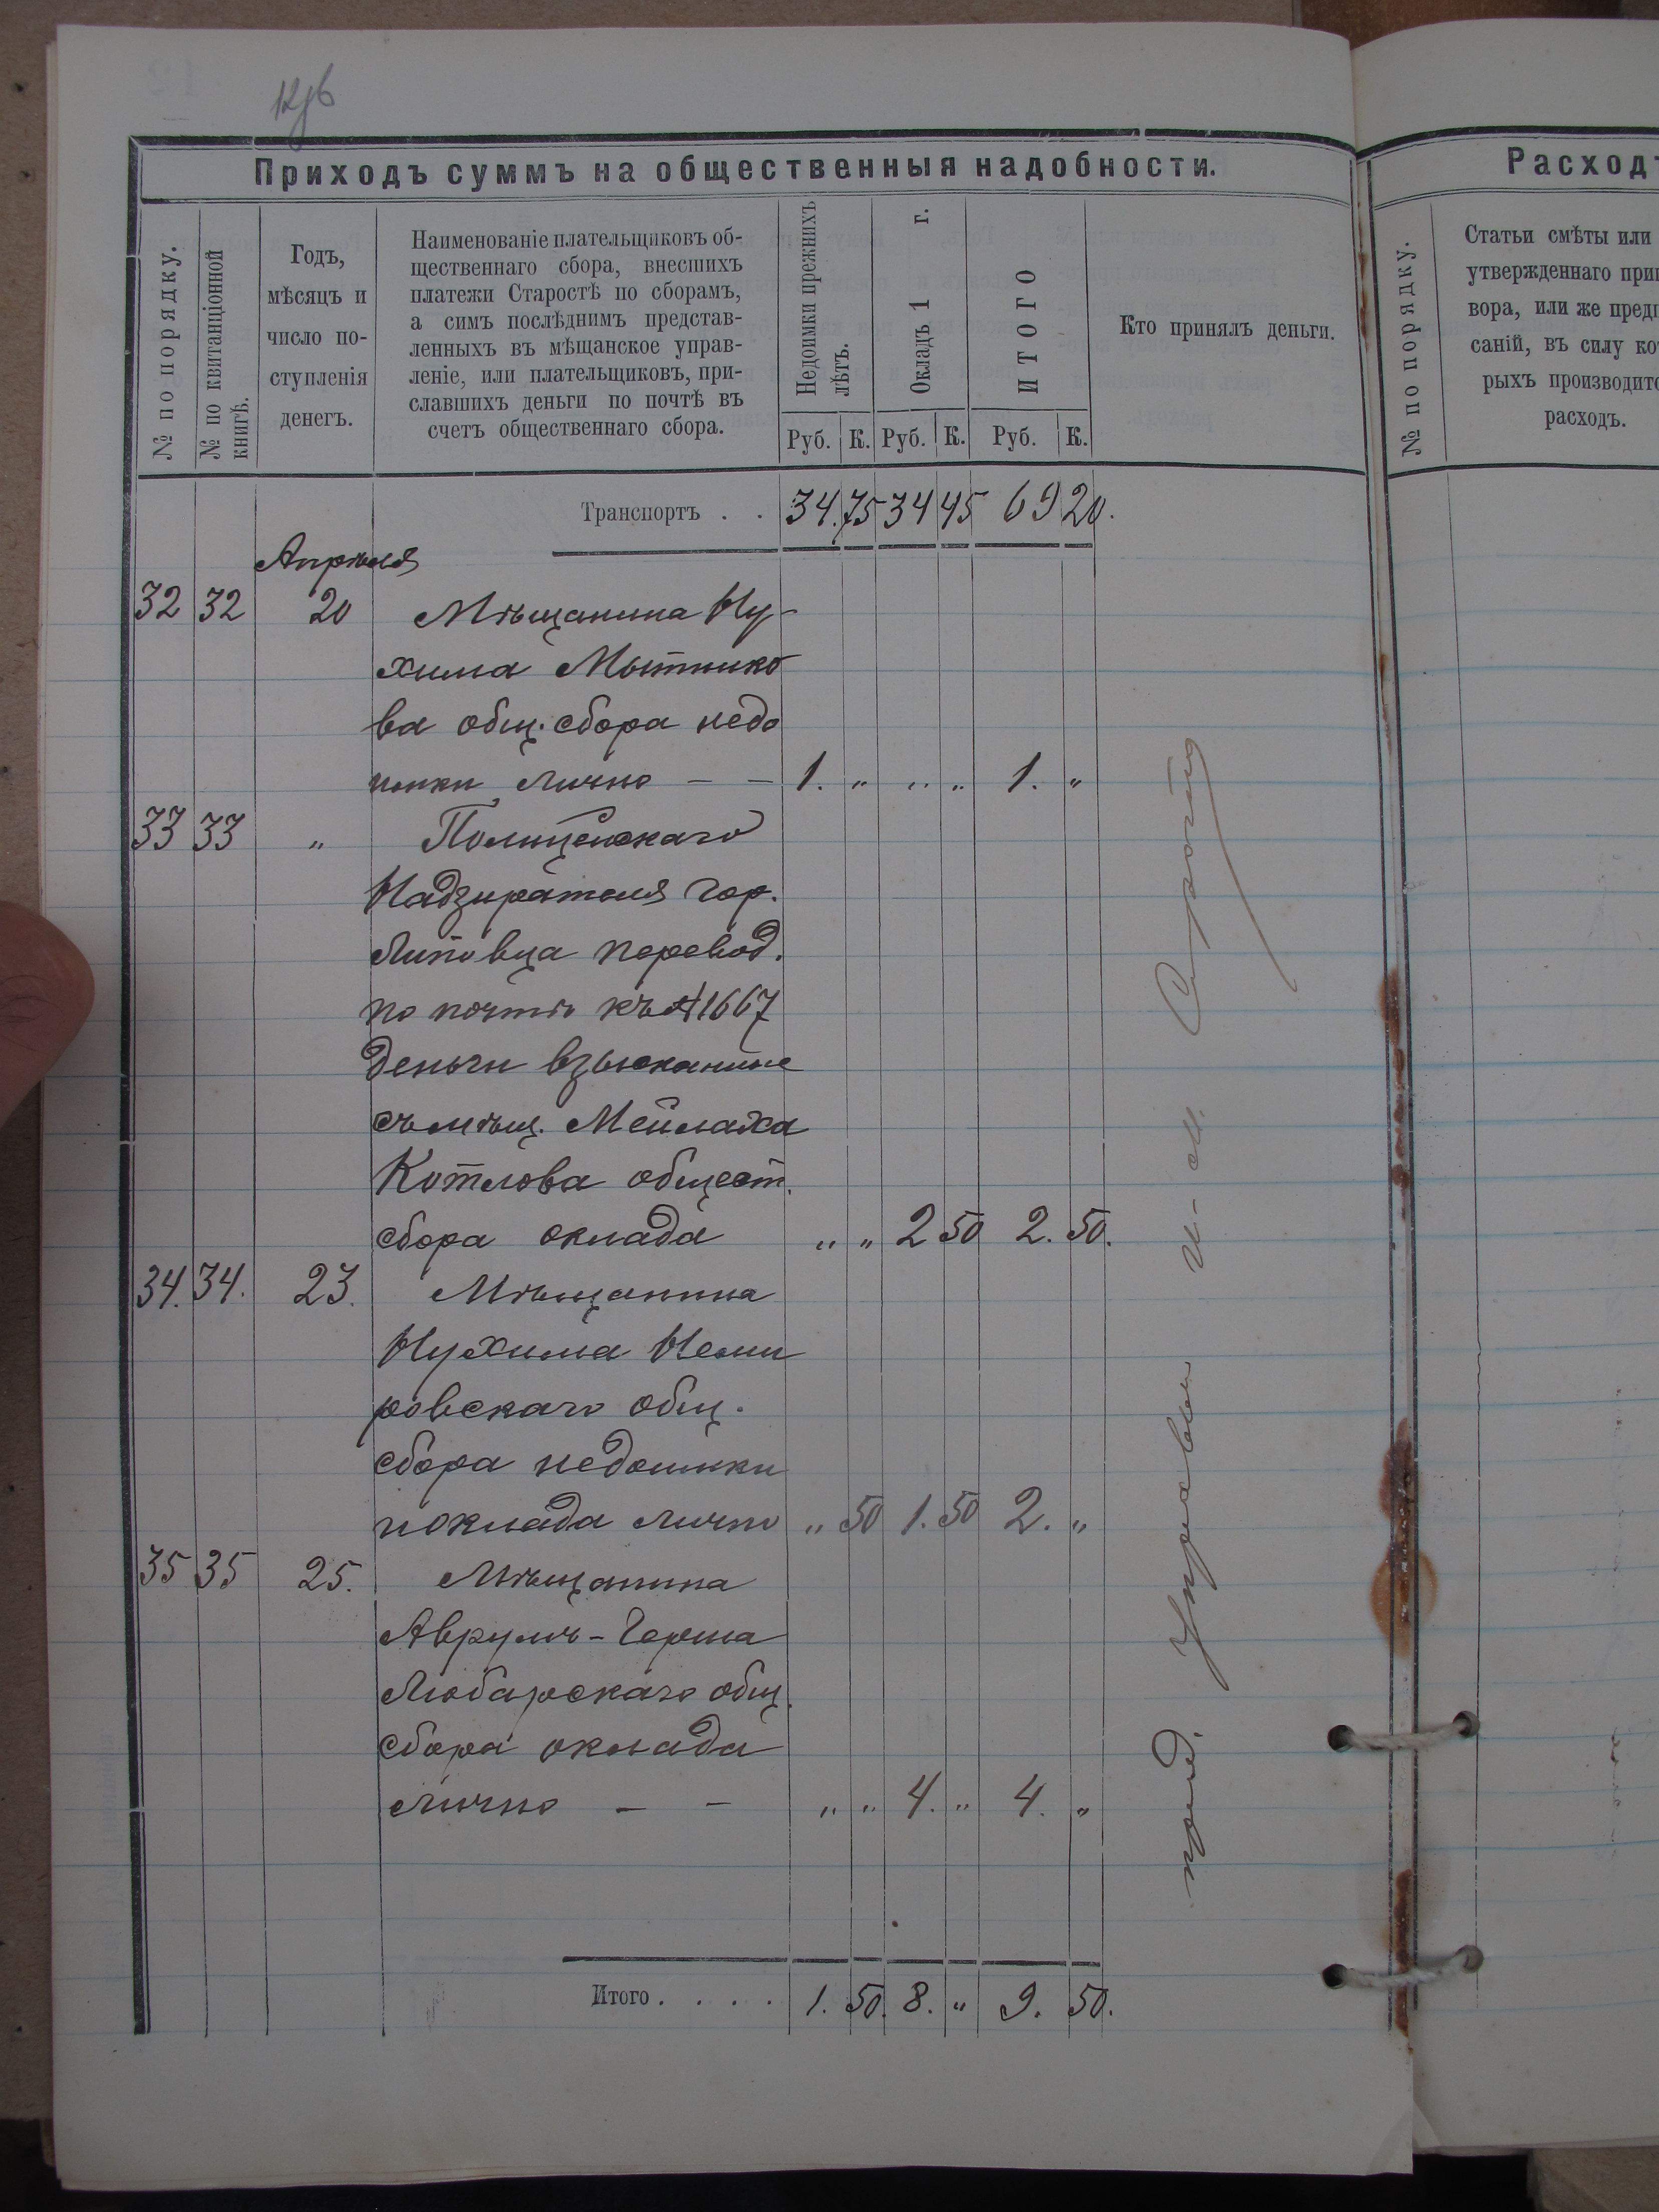 12об
Приходъ суммъ на общественныя надобности.
№ по порядку.
№ по квитанціонной книгѣ.
Годъ,
мѣсяцъ и
число по-
ступленія
денегъ.
Наименованіе плательщиковъ об-
щественнаго сбора, внесшихъ
платежи Старостѣ по сборамъ,
а симъ послѣднимъ представ-
ленныхъ въ мѣщанское управ-
леніе, или плательщиковъ, при-
славшихъ деньги по почтѣ въ
счетъ общественнаго сбора.
Недоимки прежнихъ
лѣтъ.
Окладъ 1 г.
ИТОГО
Руб. К. Руб. К. Руб. К.
Кто принялъ деньги.
Транспортъ . . 34. 75 34 45 69 20.
Апрѣля
32 32 20 Мѣщанина Ну-
хима Мытнико
ва общ. сбора недо
имки лично – – 1. „ „ „ 1. „
33 33 „ Полицейскаго
Надзирателя гор.
Липовца перевод.
по почтѣ къ № 1667
деньги взысканные
съ мѣщ. Мейлаха
Котлова общест.
сбора оклада „ „ 2 50 2. 50.
34. 34. 23. Мѣщанина
Нухима Неми
ровскаго общ.
сбора недоимки
и оклада лично „ 50 1. 50 2. „
35 35 25. Мѣщанина
Аврумъ-Герша
Любарскаго общ.
сбора оклада
лично – – „ „ 4. „ 4. „
Итого . . . . 1. 50. 8. „ 9. 50.
Расходъ
№ по порядку.
Статьи смѣты или
утвержденнаго при
вора, или же пред
саній, въ силу ко
рыхъ производит
расходъ.